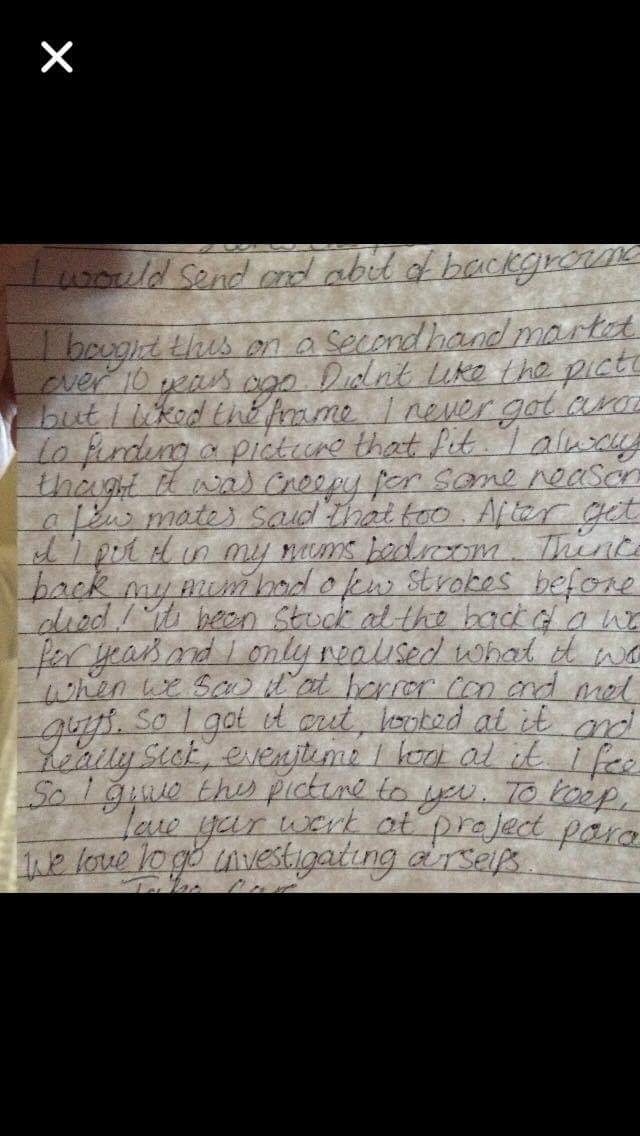 I would send and abit of background
I bought this on a second hand market
over 10 years ago. Didn't like the pict
but I liked the frame. I never got arou
to finding a picture that fit. I alway
thought it was creepy for some reason
a few mates said that too. After get
it I put it in my mums bedroom. Thinki
back my mum had a few strokes before
died! its been stuck at the back of a w
for years and I only realised what it wa
when we saw it at horror con and met
guys. So I got it out, looked at it and
really sick, everytime I look at it I fee
So I give this picture to you. To keep,
love your work at project para
We love to go investigating ourselfs.
Take Care